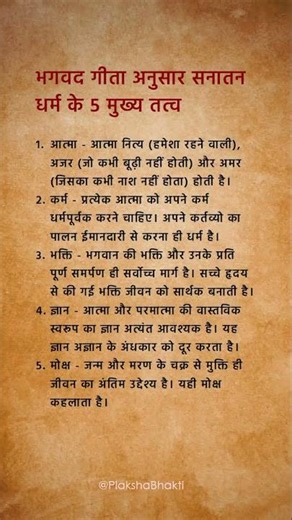 भगवद गीता अनुसार सनातन
धर्म के 5 मुख्य तत्व
1. आत्मा - आत्मा नित्य (हमेशा रहने वाली),
अजर (जो कभी बूढ़ी नहीं होती) और अमर
(जिसका कभी नाश नहीं होता) होती है।
2. कर्म - प्रत्येक आत्मा को अपने कर्म
धर्मपूर्वक करने चाहिए। अपने कर्तव्यो का
पालन ईमानदारी से करना ही धर्म है।
3. भक्ति - भगवान की भक्ति और उनके प्रति
पूर्ण समर्पण ही सर्वोच्च मार्ग है। सच्चे हृदय
से की गई भक्ति जीवन को सार्थक बनाती है।
4. ज्ञान - आत्मा और परमात्मा की वास्तविक
स्वरूप का ज्ञान अत्यंत आवश्यक है। यह
ज्ञान अज्ञान के अंधकार को दूर करता है।
5. मोक्ष - जन्म और मरण के चक्र से मुक्ति ही
जीवन का अंतिम उद्देश्य है। यही मोक्ष
कहलाता है।
@PlakshaBhakti